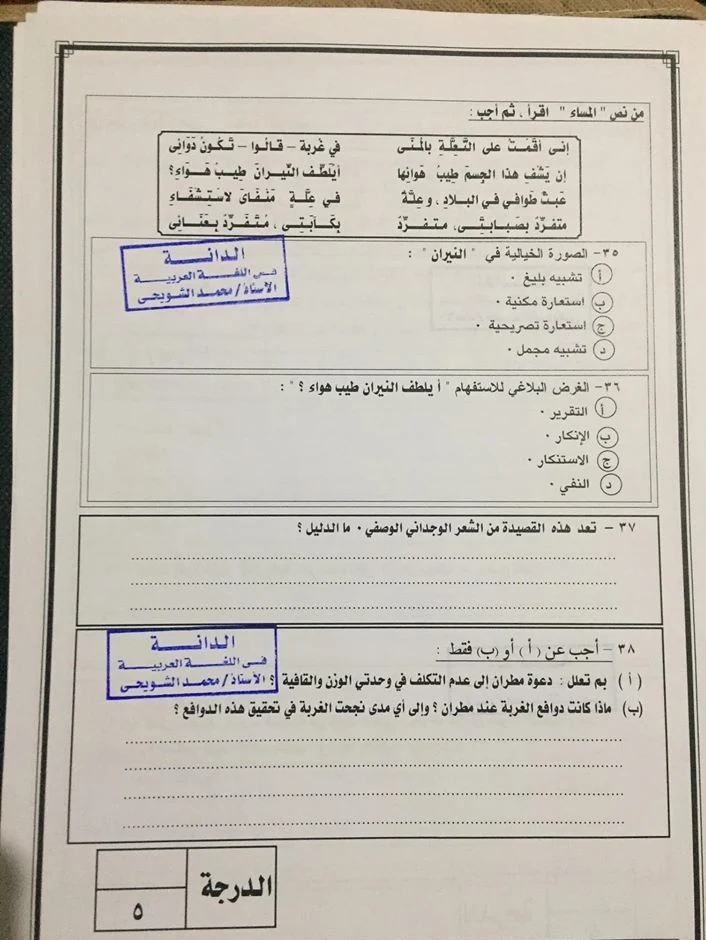 من نص " المساء " اقرأ ، ثم أجب :
إنى أقمت على التعلة بالمنى في غربة – قالوا – تكون دوائى
إن يشف هذا الجسم طيب هوائها أيلطف النيران طيب هواء؟
عبث طوافي في البلاد ، وعلة في علة منفاى لاستشفاء
متفرد بصبابتى، متفرد بكآبتى ، متفرد بعنائى
٣٥- الصورة الخيالية في " النيران " :
أ تشبيه بليغ ٠
ب استعارة مكنية ٠
ج استعارة تصريحية ٠
د تشبيه مجمل ٠
الدانة
فى اللغة العربية
الأستاذ/ محمد الشويحى
٣٦- الغرض البلاغي للاستفهام " أ يلطف النيران طيب هواء ؟ " :
أ التقرير ٠
ب الإنكار ٠
ج الاستنكار ٠
د النفي ٠
٣٧ – تعد هذه القصيدة من الشعر الوجداني الوصفي ٠ ما الدليل ؟
٣٨ – أجب عن ( أ ) أو (ب) فقط :
( أ ) بم تعلل : دعوة مطران إلى عدم التكلف في وحدتي الوزن والقافية ؟
(ب) ماذا كانت دوافع الغربة عند مطران ؟ وإلى أي مدى نجحت الغربة في تحقيق هذه الدوافع ؟
الدانة
فى اللغة العربية
الأستاذ/ محمد الشويحى
الدرجة
٥